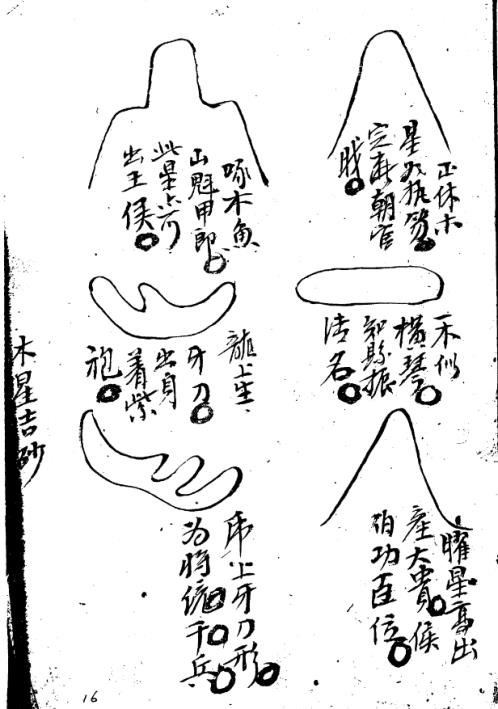 正体木
星如执笏
定在朝官
戝
木似
横琴
知縣振
清名
曜星高出
産大貴
伯功臣位
啄木魚
山魁甲郎
此星上竒
出王侯
龍上生
牙刀
出身
着紫
袍
虎上牙刀形
为将統千兵
木星吉砂
16